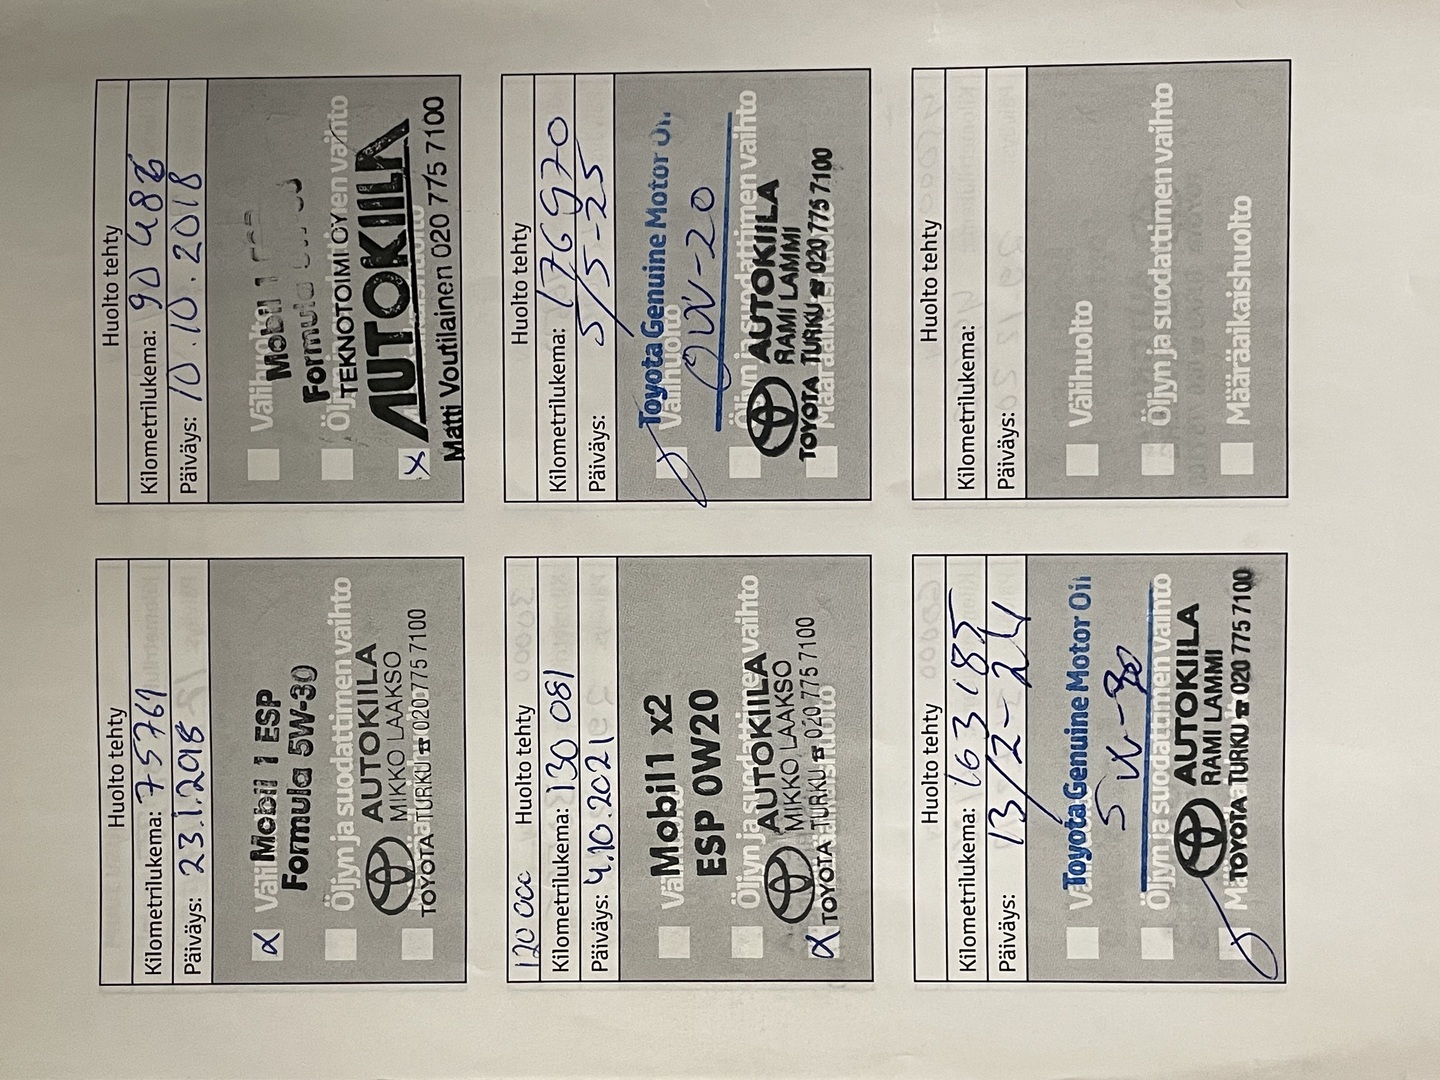 Huolto tehty
Kilometrilukema: 75761
Päiväys: 23.1.2018
α Mobil 1 ESP
Formula 5W-30
Öljyn ja suodattimen vaihto
AUTOKIILA
MIKKO LAAKSO
TOYOTA TURKU ☎ 020 775 7100
Huolto tehty
Kilometrilukema: 90 486
Päiväys: 10.10.2018
Välihuolto
Mobil 1 ESP
Formula
Öljyn ja suodattimen vaihto
TEKNOTOIMI OY
x AUTOKIILA
Matti Voutilainen 020 775 7100
120 000 Huolto tehty
Kilometrilukema: 130 081
Päiväys: 4.10.2021
Mobil1 x2
ESP 0W20
Öljyn ja suodattimen vaihto
AUTOKIILA
MIKKO LAAKSO
α TOYOTA TURKU ☎ 020 775 7100
Huolto tehty
Kilometrilukema: 176970
Päiväys: 5/5-25
Toyota Genuine Motor Oil
Välihuolto
0W-20
Öljyn ja suodattimen vaihto
AUTOKIILA
RAMI LAMMI
Määräaikaishuolto
TOYOTA TURKU ☎ 020 775 7100
Huolto tehty
Kilometrilukema: 163 185
Päiväys: 13/2-24
Toyota Genuine Motor Oil
5W-30
Öljyn ja suodattimen vaihto
AUTOKIILA
RAMI LAMMI
TOYOTA TURKU ☎ 020 775 7100
Huolto tehty
Kilometrilukema:
Päiväys:
Välihuolto
Öljyn ja suodattimen vaihto
Määräaikaishuolto